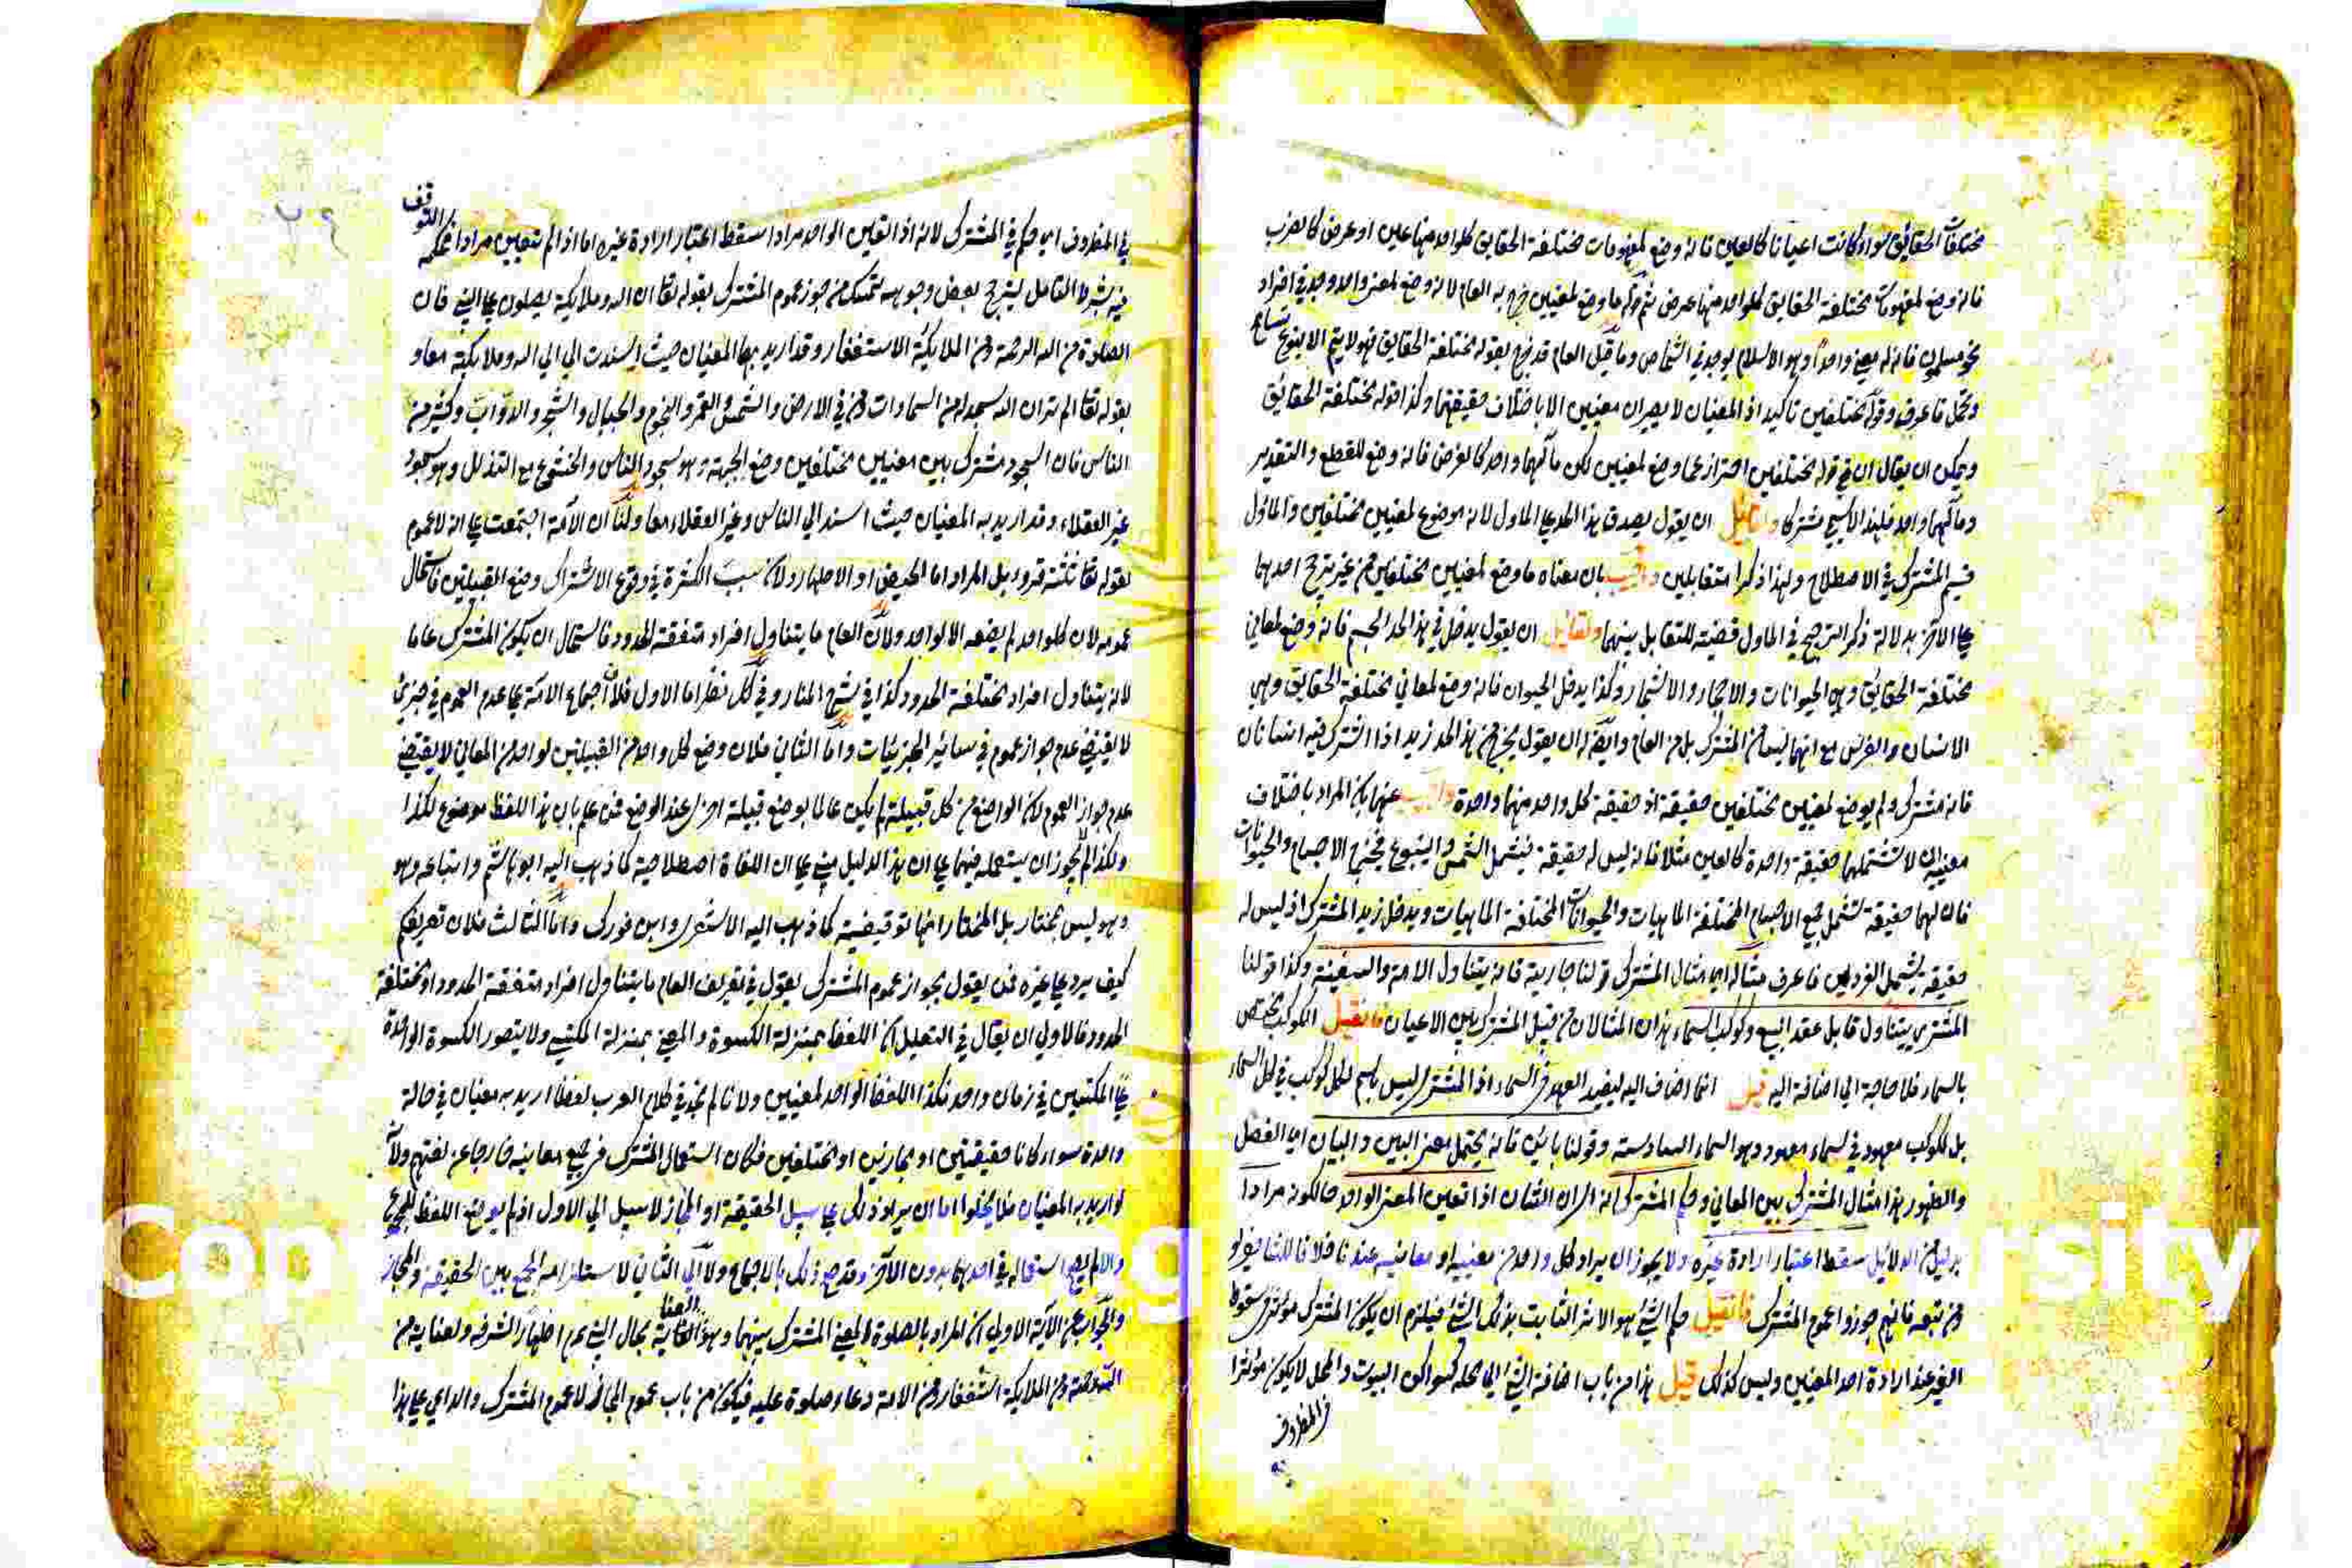 مختلفات الحقائق سواء كانت اعيانا كالعين فانه وضع لمفهومات مختلفة الحقايق كلواحد منها عين او عرض كالضرب
فانه وضع لمفهومات مختلفة الحقايق كلواحد منها عرض ثم قوله ما وضع لمعنيين خرج به العام لانه وضع لمعنى واحد وجد في افراد
نحو مسلمون فانه له معنى واحدا وهو الاسلام يوجد في اشخاص وما قيل العام قد خرج بقوله مختلفة الحقايق فهو لا يتم الا بنوع تسامح
وتمحل فاعرف وقوله مختلفين تاكيد اذ المعنيان لا يصيران معنيين الا باختلاف حقيقتهما وكذا قوله مختلفة الحقائق
ويمكن ان يقال ان في قوله مختلفين احترازا عما وضع لمعنيين لكن مآلهما واحد كالفرض فانه وضع للقطع والتقدير
ومآلهما واحد فلهذا لا يسمى مشتركا ولقائل ان يقول يصدق هذا الحد على الماول لانه موضوع لمعنيين مختلفين والماؤل
قسيم المشترك في الاصطلاح ولهذا ذكرا متقابلين واجيب بان معناه ما وضع لمعنيين مختلفين من غير ترجح احدهما
على الآخر بدلالة ذكر الترجيح في الماول قضية للتقابل بينهما ولقائل ان يقول يدخل في هذا الحد الجسم فانه وضع لمعاني
مختلفة الحقايق وهي الحيوانات والاحجار والاشجار وكذا يدخل الحيوان فانه وضع لمعاني مختلفة الحقايق وهي
الانسان والفرس مع انهما ليسا من المشترك بل من العام وايضا له ان يقول يخرج من هذا الحد زيد اذا اشترك فيه انسانان
فانه مشترك ولم يوضع لمعنيين مختلفين حقيقة اذ حقيقة كل واحد منهما واحدة واجيب عنهما بان المراد باختلاف
معنييه ان لا تشتملهما حقيقة واحدة كالعين مثلا فانه ليس له حقيقة فتشمل الشمس والينبوع فيخرج الاجسام والحيوانات
فان لهما حقيقة تشمل جميع الاجسام المختلفة الماهيات والحيوانات المختلفة الماهيات ويدخل زيد المشترك اذ ليس له
حقيقة يشمل الفردين فاعرف مثاله اي مثال المشترك قولنا جارية فانه يتناول الامة والسفينة وكذا قولنا
المشتري يتناول قابل عقد البيع وكوكب السماء هذان المثالان من قبيل المشترك بين الاعيان فان قيل الكوكب مختص
بالسماء فلا حاجة الى اضافة اليه قيل انما اضاف اليه ليفيد العهد في السماء اذ المشتري ليس باسم لكل كوكب في كل السماء
بل لكوكب معهود في سماء معهود وهو السماء السادسة وقولنا باين فانه يحتمل معنى البين والبيان اي الفصل
والظهور هذا مثال المشترك بين المعاني وحكم المشترك انه اي ان الشان اذا تعين المعنى الواحد حال كونه مرادا
بدليل من الدلائل سقط اعتبار ارادة غيره ولا يجوز ان يراد كل واحد من معنييه او معانيه عندنا خلافا للشافعي و
من تبعه فانهم جوزوا عموم المشترك فان قيل حكم الشيء هو الاثر الثابت بذلك الشيء فيلزم ان يكون المشترك مؤثرا في سقوط
الغير عند ارادة احد المعنيين وليس كذلك قيل هذا من باب اضافة الشيء الى محله كسواكن البيوت والمحل لا يكون مؤثرا
في المظروف
في المظروف اي حكم في المشترك لانه اذا تعين الواحد مرادا سقط اعتبار ارادة غيره اما اذا لم يتعين مرادا فحكمه التوقف
فيه بشرط التامل ليترجح بعض وجوهه تمسك من جوز عموم المشترك بقوله تعا ان الله وملائكته يصلون على النبي فان
الصلوة من الله الرحمة ومن الملايكة الاستغفار وقد اريد بها المعنيان حيث اسندت الى الى الله وملايكته معا و
بقوله تعا الم تر ان الله يسجد له من السماوات ومن في الارض والشمس والقمر والنجوم والجبال والشجر والدواب وكثير من
الناس فان السجود مشترك بين معنيين مختلفين وضع الجبهة وهو سجود الناس والخشوع مع التذلل وهو سجود
غير العقلاء وقد اريد به المعنيان حيث اسند الى الناس وغير العقلاء معا ولنا ان الامة اجتمعت على انه لا عموم
لقوله تعا ثلثة قروء بل المراد اما الحيض او الاطهار ولان سبب الكثرة في وقوع الاشتراك وضع القبيلتين فاستحال
عمومه لان كلواحد لم يضعه الا لواحد ولان العام ما يتناول افراد متفقة الحدود فاستحال ان يكون المشترك عاما
لانه يتناول افراد مختلفة الحدود كذا في شرح المنار وفي كل نظر اما الاول فلان اجماع الامة على عدم العموم في جزئي
لا يقتضي عدم جواز عموم في سائر الجزئيات واما الثاني فلان وضع كل واحد من القبيلتين لواحد من المعاني لا يقتضي
عدم جواز العموم لان الواضع من كل قبيلة لم يكن عالما بوضع قبيلة اخرى عند الوضع فمن علم بان هذا اللفظ موضوع لكذا
ولكذا لم يجوز ان يستعمله فيهما على ان هذا الدليل مبني على ان اللغاة اصطلاحية كما ذهب اليه ابو هاشم واتباعه وهو
وهو ليس بمختار بل المختار انها توقيفية كما ذهب اليه الاشعري وابن فورك واما الثالث فلان تعريفكم
كيف يرد على غيره فمن يقول بجواز عموم المشترك يقول في تعريف العام ما يتناول افراد متفقة الحدود او مختلفة
الحدود فالاولى ان يقال في التعليل ان اللفظ بمنزلة الكسوة والمعنى بمنزلة المكتسي ولا يتصور الكسوة الواحدة
على المكتسيين في زمان واحد فكذا اللفظ الواحد لمعنيين ولانا لم نجد في كلام العرب لفظا اريد به معنيان في حالة
واحدة سواء كانا حقيقتين او مجازين او مختلفين فكان استعمال المشترك في جميع معانيه خارجا عن لغتهم ولانه
لو اريد به المعنيان فلا يخلوا اما ان يراد ذلك على سبيل الحقيقة او المجاز لا سبيل الى الاول اذ لم يوضع اللفظ للمجموع
والا لم يصح استعماله في احدهما بدون الآخر وقد صح ذلك بالاجماع ولا الى الثاني لاستلزامه الجمع بين الحقيقة والمجاز
والجواب عن الآية الاولى ان المراد بالصلوة المعنى المشترك بينهما وهو العناية بحال النبي عم اظهارا لشرفه والعناية من
الله رحمة ومن الملايكة استغفار ومن الامة دعاء وصلوة عليه فيكون من باب عموم المجاز لا عموم المشترك والداعي على هذا